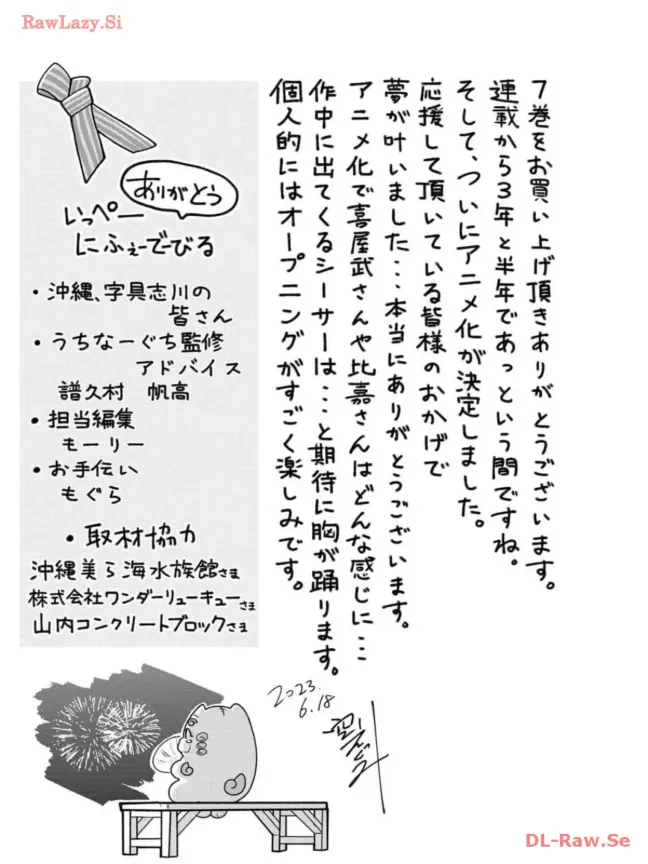 RawLazy.Si
7巻をお買い上げ頂きありがとうございます。
連載から3年と半年であっという間ですね。
そして、ついにアニメ化が決定しました。
応援して頂いている皆様のおかげで
夢が叶いました...本当にありがとうございます。
アニメ化で喜屋武さんや比嘉さんはどんな感じに...
作中に出てくるシーサーは...と期待に胸が踊ります。
個人的にはオープニングがすごく楽しみです。
ありがとう
いっぺー
にふぇーでーびる
・沖縄、字具志川の
皆さん
・うちなーぐち監修
アドバイス
譜久村 帆高
・担当編集
モーリー
・お手伝い
もぐら
・取材協力
沖縄美ら海水族館さま
株式会社ワンダーリューキューさま
山内コンクリートブロックさま
2023.
6.18
DL-Raw.Se